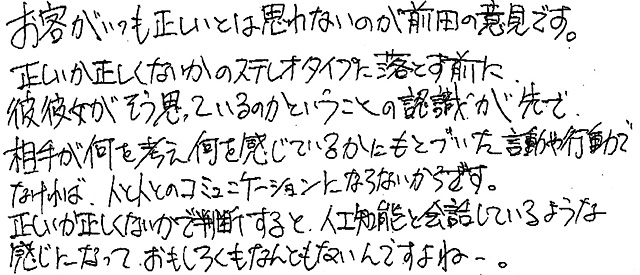 お客がいつも正しいとは思れないのが前田の意見です。
正しいか正しくないかのステレオタイプに落とす前に、
彼彼女がそう思っているのかということの認識が先で
相手が何を考え何を感じているかにもとづいた言動や行動で
なければ、人と人とのコミュニケーションにならないからです。
正しいか正しくないかで判断すると、人工知能と会話しているような
感じになって、おもしろくもなんともないんですよねー。